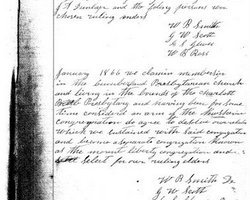 and the following persons were
chosen ruling elders
W B Smith
G W Scott
W E Ross
January 1866 we claim membership
in the Cumberland Presbyterian church
and living in the bounds of the Charlott
Presbytery and having been for some
time considered an arm of the
congregation do agree to dissolve our
which we sustained with said congregation
and become a separate congregation
at the present liberty congregation and
select for our ruling elders
W B Smith
G W Scott